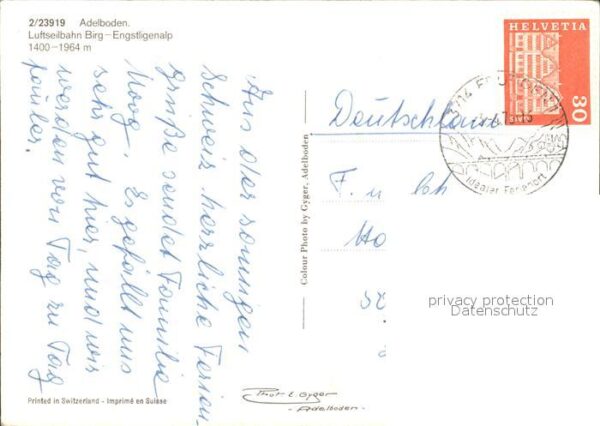 2/23919 Adelboden.
Luftseilbahn Birg – Engstligenalp
1400 – 1964 m
Aus der sonnigen
Schweiz herzliche Ferien
grüße sendet Familie
Moog. Es gefällt uns
sehr gut hier, und wir
werden von Tag zu Tag
fauler.
Printed in Switzerland – Imprimé en Suisse
Colour Photo by Gyger, Adelboden
Phot E. Gyger
- Adelboden -
HELVETIA
30
idealer Ferienort
Deutschland
F. u
privacy protection
Datenschutz